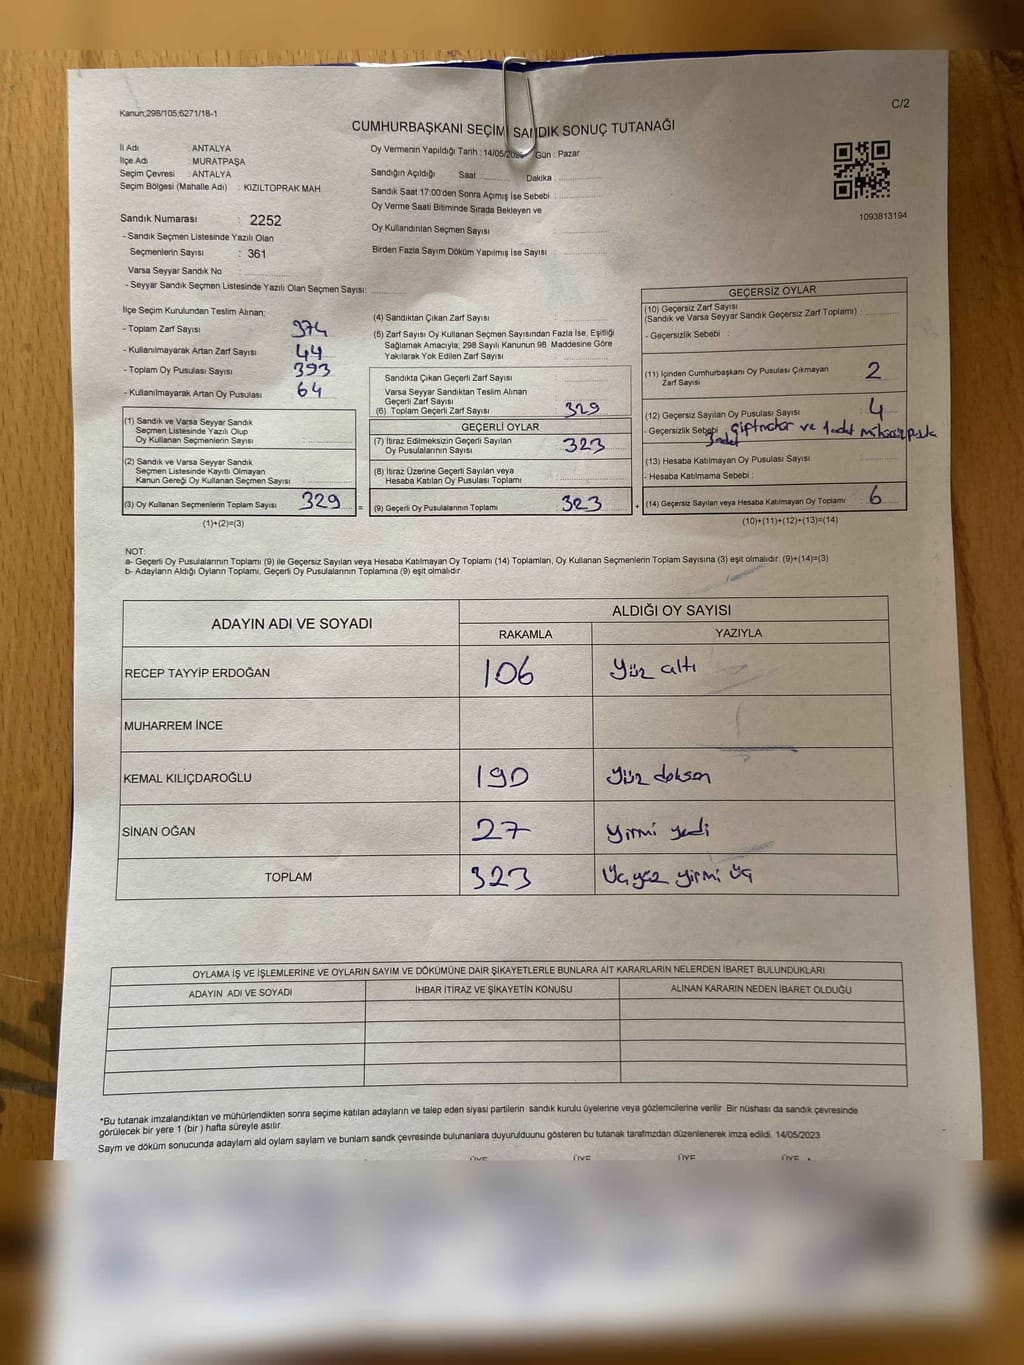 Kanun;298/105;6271/18-1
C/2
CUMHURBAŞKANI SEÇİM SANDIK SONUÇ TUTANAĞI
İl Adı : ANTALYA
İlçe Adı : MURATPAŞA
Seçim Çevresi : ANTALYA
Seçim Bölgesi (Mahalle Adı) : KIZILTOPRAK MAH
Sandık Numarası : 2252
- Sandık Seçmen Listesinde Yazılı Olan
Seçmenlerin Sayısı : 361
Varsa Seyyar Sandık No :
- Seyyar Sandık Seçmen Listesinde Yazılı Olan Seçmen Sayısı:
Oy Vermenin Yapıldığı Tarih : 14/05/2023 Gün : Pazar
Sandığın Açıldığı Saat Dakika
Sandık Saat 17:00'den Sonra Açımış İse Sebebi :
Oy Verme Saati Bitiminde Sırada Bekleyen ve
Oy Kullandırılan Seçmen Sayısı :
Birden Fazla Sayım Döküm Yapılmış İse Sayısı :
1093813194
İlçe Seçim Kurulundan Teslim Alınan;
- Toplam Zarf Sayısı 374
- Kullanılmayarak Artan Zarf Sayısı 44
- Toplam Oy Pusulası Sayısı 393
- Kullanılmayarak Artan Oy Pusulası 64
(1) Sandık ve Varsa Seyyar Sandık
Seçmen Listesinde Yazılı Olup
Oy Kullanan Seçmenlerin Sayısı :
(2) Sandık ve Varsa Seyyar Sandık
Seçmen Listesinde Kayıtlı Olmayan
Kanun Gereği Oy Kullanan Seçmen Sayısı :
(3) Oy Kullanan Seçmenlerin Toplam Sayısı 329 =
(1)+(2)=(3)
(4) Sandıktan Çıkan Zarf Sayısı :
(5) Zarf Sayısı Oy Kullanan Seçmen Sayısından Fazla İse, Eşitliği
Sağlamak Amacıyla; 298 Sayılı Kanunun 98. Maddesine Göre
Yakılarak Yok Edilen Zarf Sayısı :
Sandıkta Çıkan Geçerli Zarf Sayısı
Varsa Seyyar Sandıktan Teslim Alınan
Geçerli Zarf Sayısı
(6) Toplam Geçerli Zarf Sayısı : 329
GEÇERLİ OYLAR
(7) İtiraz Edilmeksizin Geçerli Sayılan
Oy Pusulalarının Sayısı : 323
(8) İtiraz Üzerine Geçerli Sayılan veya
Hesaba Katılan Oy Pusulası Toplamı :
(9) Geçerli Oy Pusulalarının Toplamı : 323 +
GEÇERSİZ OYLAR
(10) Geçersiz Zarf Sayısı
(Sandık ve Varsa Seyyar Sandık Geçersiz Zarf Toplamı) :
- Geçersizlik Sebebi :
(11) İçinden Cumhurbaşkanı Oy Pusulası Çıkmayan
Zarf Sayısı : 2
(12) Geçersiz Sayılan Oy Pusulası Sayısı : 4
- Geçersizlik Sebebi 3 adet ve 1 adet
(13) Hesaba Katılmayan Oy Pusulası Sayısı :
- Hesaba Katılmama Sebebi :
(14) Geçersiz Sayılan veya Hesaba Katılmayan Oy Toplamı : 6
(10)+(11)+(12)+(13)=(14)
NOT:
a- Geçerli Oy Pusulalarının Toplamı (9) ile Geçersiz Sayılan veya Hesaba Katılmayan Oy Toplamı (14) Toplamları, Oy Kullanan Seçmenlerin Toplam Sayısına (3) eşit olmalıdır. (9)+(14)=(3)
b- Adayların Aldığı Oyların Toplamı, Geçerli Oy Pusulalarının Toplamına (9) eşit olmalıdır.
ADAYIN ADI VE SOYADI ALDIĞI OY SAYISI
RAKAMLA YAZIYLA
RECEP TAYYİP ERDOĞAN 106 Yüz altı
MUHARREM İNCE
KEMAL KILIÇDAROĞLU 190 Yüz doksan
SİNAN OĞAN 27 Yirmi yedi
TOPLAM 323 Üçyüz yirmi üç
OYLAMA İŞ VE İŞLEMLERİNE VE OYLARIN SAYIM VE DÖKÜMÜNE DAİR ŞİKAYETLERLE BUNLARA AİT KARARLARIN NELERDEN İBARET BULUNDUKLARI
ADAYIN ADI VE SOYADI İHBAR İTİRAZ VE ŞİKAYETİN KONUSU ALINAN KARARIN NEDEN İBARET OLDUĞU
*Bu tutanak imzalandıktan ve mühürlendikten sonra seçime katılan adayların ve talep eden siyasi partilerin sandık kurulu üyelerine veya gözlemcilerine verilir. Bir nüshası da sandık çevresinde
görülecek bir yere 1 (bir ) hafta süreyle asılır.
Saym ve döküm sonucunda adaylam ald oylam saylam ve bunlam sandk çevresinde bulunanlara duyurulduunu gösteren bu tutanak tarafmzdan düzenlenerek imza edildi. 14/05/2023
ÜYE ÜYE ÜYE ÜYE